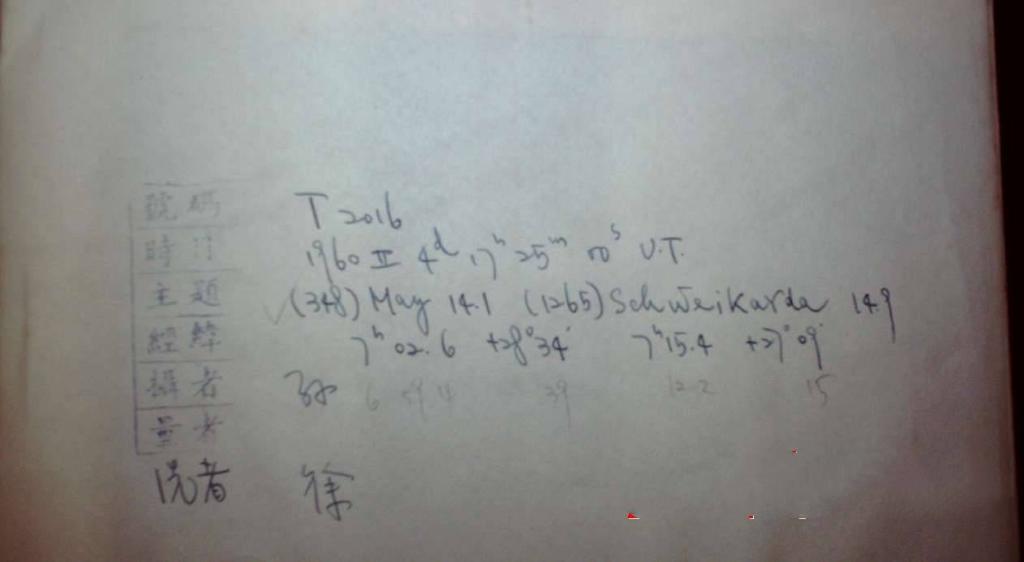 號碼 T 2016
時刻 1960 II 4d 17h 25m 00s U.T.
主題 (348) May 14.1 (1265) Schweikarda 14.9
經緯 7h 02.6 +28°34' 7h 15.4 +27°09'
攝者 孙 6 59 4 39 12.2 15
量者
洗者 徐